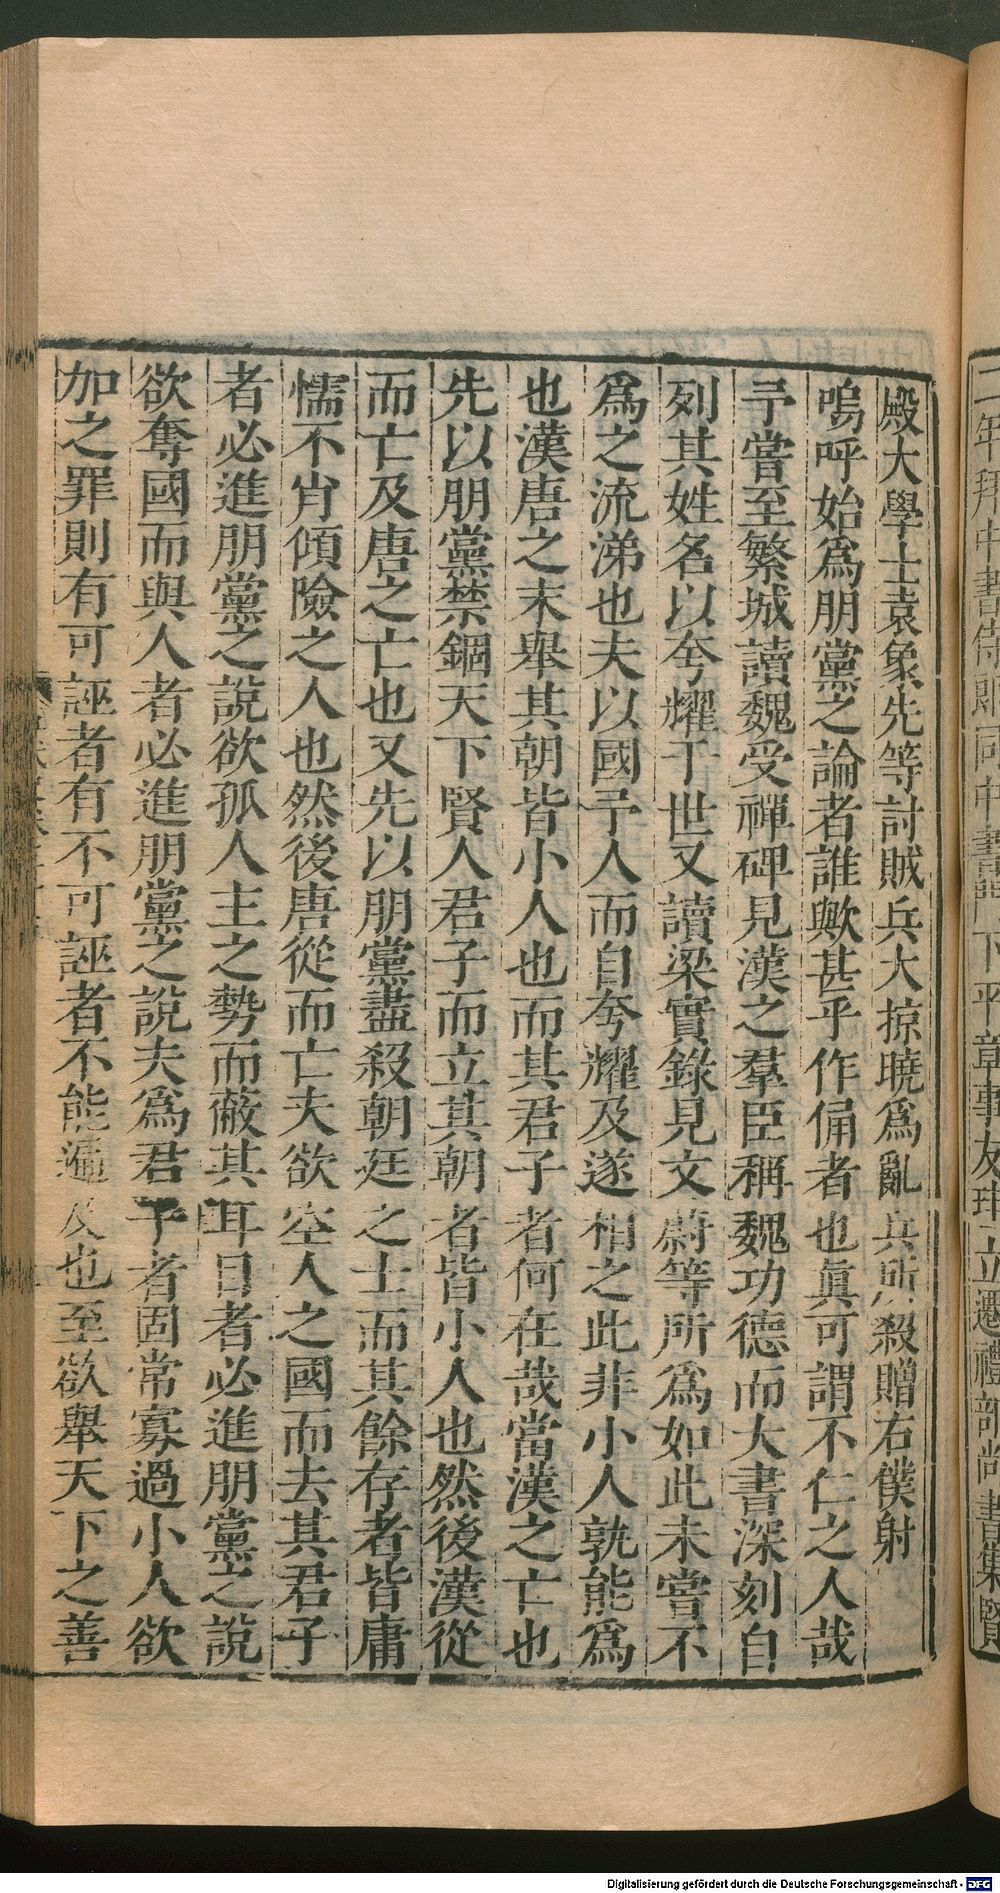 殿大學士袁象先等討賊兵大掠曉爲亂兵所殺贈右僕射
嗚呼始爲朋黨之論者誰歟甚乎作俑者也眞可謂不仁之人哉
予嘗至繁城讀魏受禪碑見漢之羣臣稱魏功德而大書深刻自
列其姓名以夸耀于世又讀梁實錄見文蔚等所爲如此未嘗不
爲之流涕也夫以國予人而自夸耀及遂相之此非小人孰能爲
也漢唐之末舉其朝皆小人也而其君子者何在哉當漢之亡也
先以朋黨禁錮天下賢人君子而立其朝者皆小人也然後漢從
而亡及唐之亡也又先以朋黨盡殺朝廷之士而其餘存者皆庸
懦不肖傾險之人也然後唐從而亡夫欲空人之國而去其君子
者必進朋黨之說欲孤人主之勢而蔽其耳目者必進朋黨之說
欲奪國而與人者必進朋黨之說夫爲君子者固常寡過小人欲
加之罪則有可誣者有不可誣者不能遍及也至欲舉天下之善
二年拜中書侍郎同中書門下平章事友珪立遷禮部尚書集賢
Digitalisierung gefördert durch die Deutsche Forschungsgemeinschaft - DFG